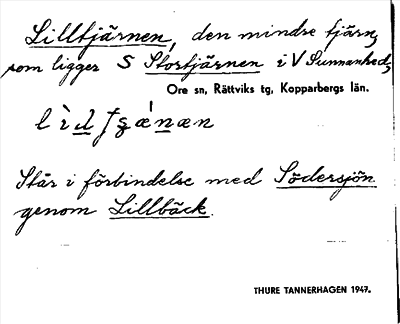 Lilltjärnen, den mindre tjärn,
som ligger S Stortjärnen i V Sunnanhed,
Ore sn, Rättviks tg, Kopparbergs län.
Står i förbindelse med Södersjön
genom Lillbäck.
THURE TANNERHAGEN 1947.